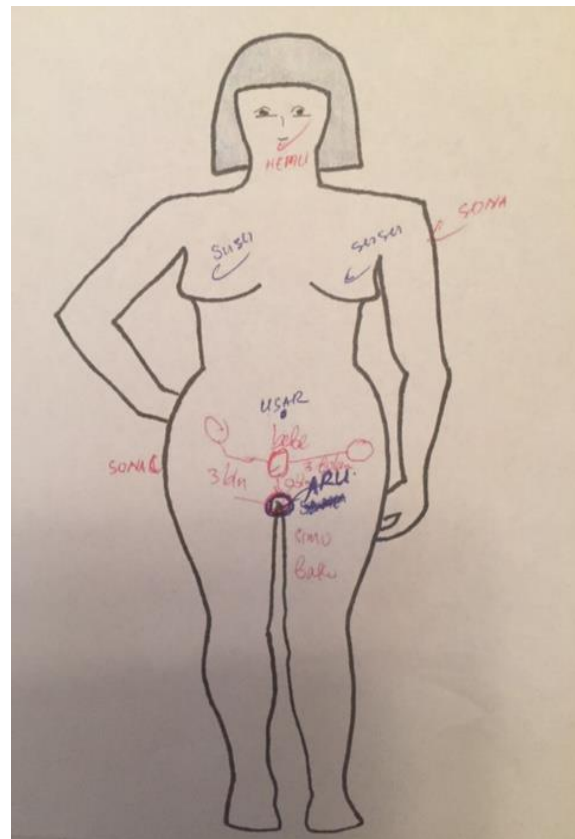 HEMU
SONA
susu
susu
USAR
bebe
SONA
3 bln
3 bln
ARU
SIMU